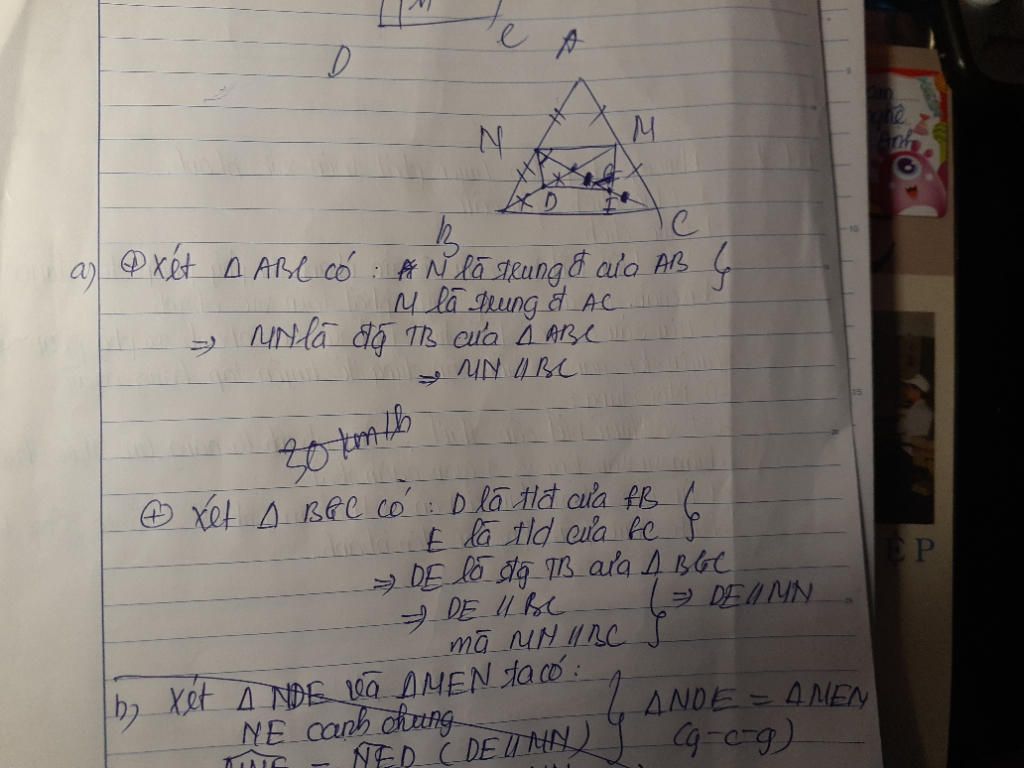 M
D
C
A
N
M
G
D
E
B
C
a) + Xét Δ ABC có : N là trung đ của AB }
M là trung đ AC
=> MN là đg TB của Δ ABC
=> MN // BC
30 km/h
+ Xét Δ BGC có : D là tđ của GB }
E là tđ của GC
=> DE là đg TB của Δ BGC
=> DE // BC } => DE // MN
mà MN // BC
b) Xét Δ NDE và Δ MEN ta có :
NE cạnh chung } Δ NDE = Δ MEN
= NED (DE // MN) (g-c-g)
Anh
ẸP